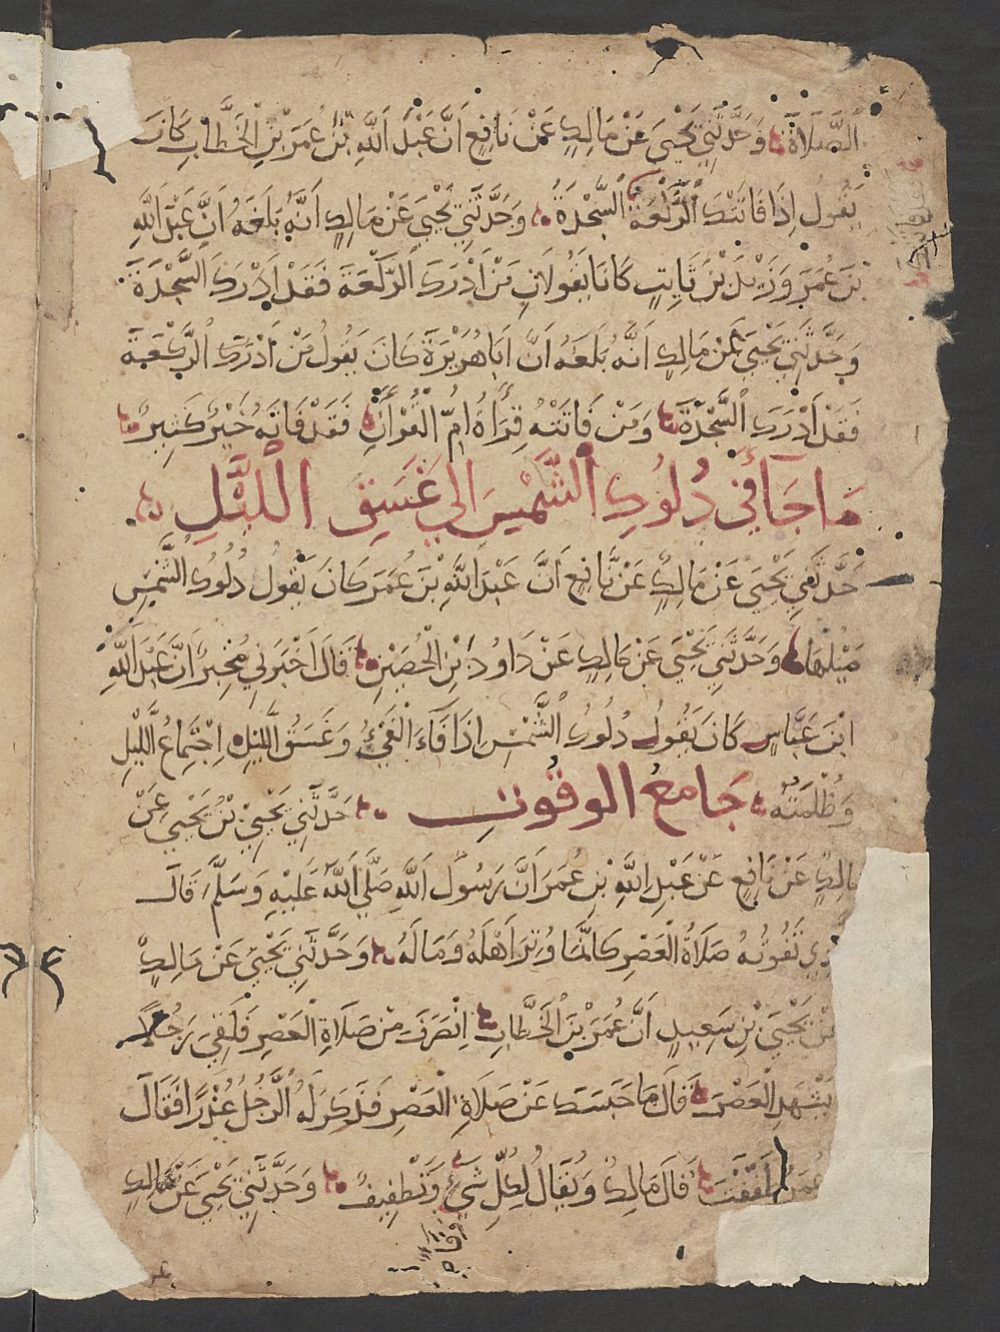 الصَّلَاةَ وَحَدَّثَنِي يَحْيَى عَنْ مَالِكٍ عَنْ نَافِعٍ اَنَّ عَبْدَ اللَّهِ بْنَ عُمَرَ بْنِ الْخَطَّابِ كَانَ
يَقُولُ اِذَا فَاتَتْكَ الرَّكْعَةُ السَّجْدَةُ وَحَدَّثَنِي يَحْيَى عَنْ مَالِكٍ اَنَّهُ بَلَغَهُ اَنَّ عَبْدَ اللَّهِ
بْنَ عُمَرَ وَزَيْدَ بْنَ ثَابِتٍ كَانَا يَقُولَانِ مَنْ اَدْرَكَ الرَّكْعَةَ فَقَدْ اَدْرَكَ السَّجْدَةَ
وَحَدَّثَنِي يَحْيَى عَنْ مَالِكٍ اَنَّهُ بَلَغَهُ اَنَّ اَبَا هُرَيْرَةَ كَانَ يَقُولُ مَنْ اَدْرَكَ الرَّكْعَةَ
فَقَدْ اَدْرَكَ السَّجْدَةَ وَمَنْ فَاتَتْهُ قِرَاءَةُ اُمِّ الْقُرْاٰنِ فَقَدْ فَاتَهُ خَيْرٌ كَثِيرٌ
مَا جَآءَ فِي دُلُوكِ الشَّمْسِ اِلَى غَسَقِ اللَّيْلِ
حَدَّثَنِي يَحْيَى عَنْ مَالِكٍ عَنْ نَافِعٍ اَنَّ عَبْدَ اللَّهِ بْنَ عُمَرَ كَانَ يَقُولُ دُلُوكُ الشَّمْسِ
مَيْلُهَا وَحَدَّثَنِي يَحْيَى عَنْ مَالِكٍ عَنْ دَاوُدَ بْنِ الْحُصَيْنِ قَالَ اَخْبَرَنِي مُخْبِرٌ اَنَّ عَبْدَ اللَّهِ
ابْنَ عَبَّاسٍ كَانَ يَقُولُ دُلُوكُ الشَّمْسِ اِذَا فَآءَ الْفَيْءُ وَغَسَقُ اللَّيْلِ اِجْتِمَاعُ اللَّيْلِ
وَظُلْمَتُهُ جَامِعُ الْوُقُوتِ حَدَّثَنِي يَحْيَى بْنُ يَحْيَى عَنْ
مَالِكٍ عَنْ نَافِعٍ عَنْ عَبْدِ اللَّهِ بْنِ عُمَرَ اَنَّ رَسُولَ اللَّهِ صَلَّى اللَّهُ عَلَيْهِ وَسَلَّمَ قَالَ
الَّذِي تَفُوتُهُ صَلَاةُ الْعَصْرِ كَاَنَّمَا وُتِرَ اَهْلَهُ وَمَالَهُ وَحَدَّثَنِي يَحْيَى عَنْ مَالِكٍ
عَنْ يَحْيَى بْنِ سَعِيدٍ اَنَّ عُمَرَ بْنَ الْخَطَّابِ اِنْصَرَفَ مِنْ صَلَاةِ الْعَصْرِ فَلَقِيَ رَجُلًا
يَشْهَدِ الْعَصْرَ فَقَالَ مَا حَبَسَكَ عَنْ صَلَاةِ الْعَصْرِ فَذَكَرَ لَهُ الرَّجُلُ عُذْرًا فَقَالَ
عُمَرُ طَفَّفْتَ قَالَ مَالِكٌ وَيُقَالُ لِكُلِّ شَيْءٍ وَتَطْفِيفٌ وَحَدَّثَنِي يَحْيَى عَنْ مَالِكٍ
وَفَاءٌ